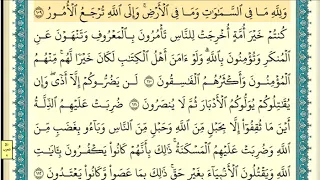 وَلِلَّهِ مَا فِي السَّمَٰوَٰتِ وَمَا فِي الْأَرْضِ وَإِلَى اللَّهِ تُرْجَعُ الْأُمُورُ ١٠٩
كُنتُمْ خَيْرَ أُمَّةٍ أُخْرِجَتْ لِلنَّاسِ تَأْمُرُونَ بِالْمَعْرُوفِ وَتَنْهَوْنَ عَنِ
الْمُنكَرِ وَتُؤْمِنُونَ بِاللَّهِ وَلَوْ ءَامَنَ أَهْلُ الْكِتَٰبِ لَكَانَ خَيْرًا لَّهُم مِّنْهُمُ
الْمُؤْمِنُونَ وَأَكْثَرُهُمُ الْفَٰسِقُونَ ١١٠ لَن يَضُرُّوكُمْ إِلَّا أَذًى وَإِن
يُقَٰتِلُوكُمْ يُوَلُّوكُمُ الْأَدْبَارَ ثُمَّ لَا يُنصَرُونَ ١١١ ضُرِبَتْ عَلَيْهِمُ الذِّلَّةُ
أَيْنَ مَا ثُقِفُوٓا إِلَّا بِحَبْلٍ مِّنَ اللَّهِ وَحَبْلٍ مِّنَ النَّاسِ وَبَآءُو بِغَضَبٍ مِّنَ
اللَّهِ وَضُرِبَتْ عَلَيْهِمُ الْمَسْكَنَةُ ذَٰلِكَ بِأَنَّهُمْ كَانُوا يَكْفُرُونَ بِـَٔايَٰتِ
اللَّهِ وَيَقْتُلُونَ الْأَنۢبِيَآءَ بِغَيْرِ حَقٍّ ذَٰلِكَ بِمَا عَصَوا وَّكَانُوا يَعْتَدُونَ ١١٢